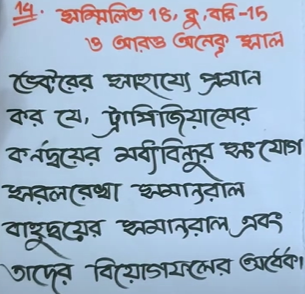 14. সম্মিলিত 18, কু, বরি-15
ও আরও অনেক সাল
ভেক্টরের সাহায্যে প্রমান
কর যে, ট্রাপিজিয়ামের
কর্নদ্বয়ের মধ্যবিন্দুর সংযোগ
সরলরেখা সমান্তরাল
বাহুদ্বয়ের সমান্তরাল এবং
তাদের বিয়োগফলের অর্ধেক।